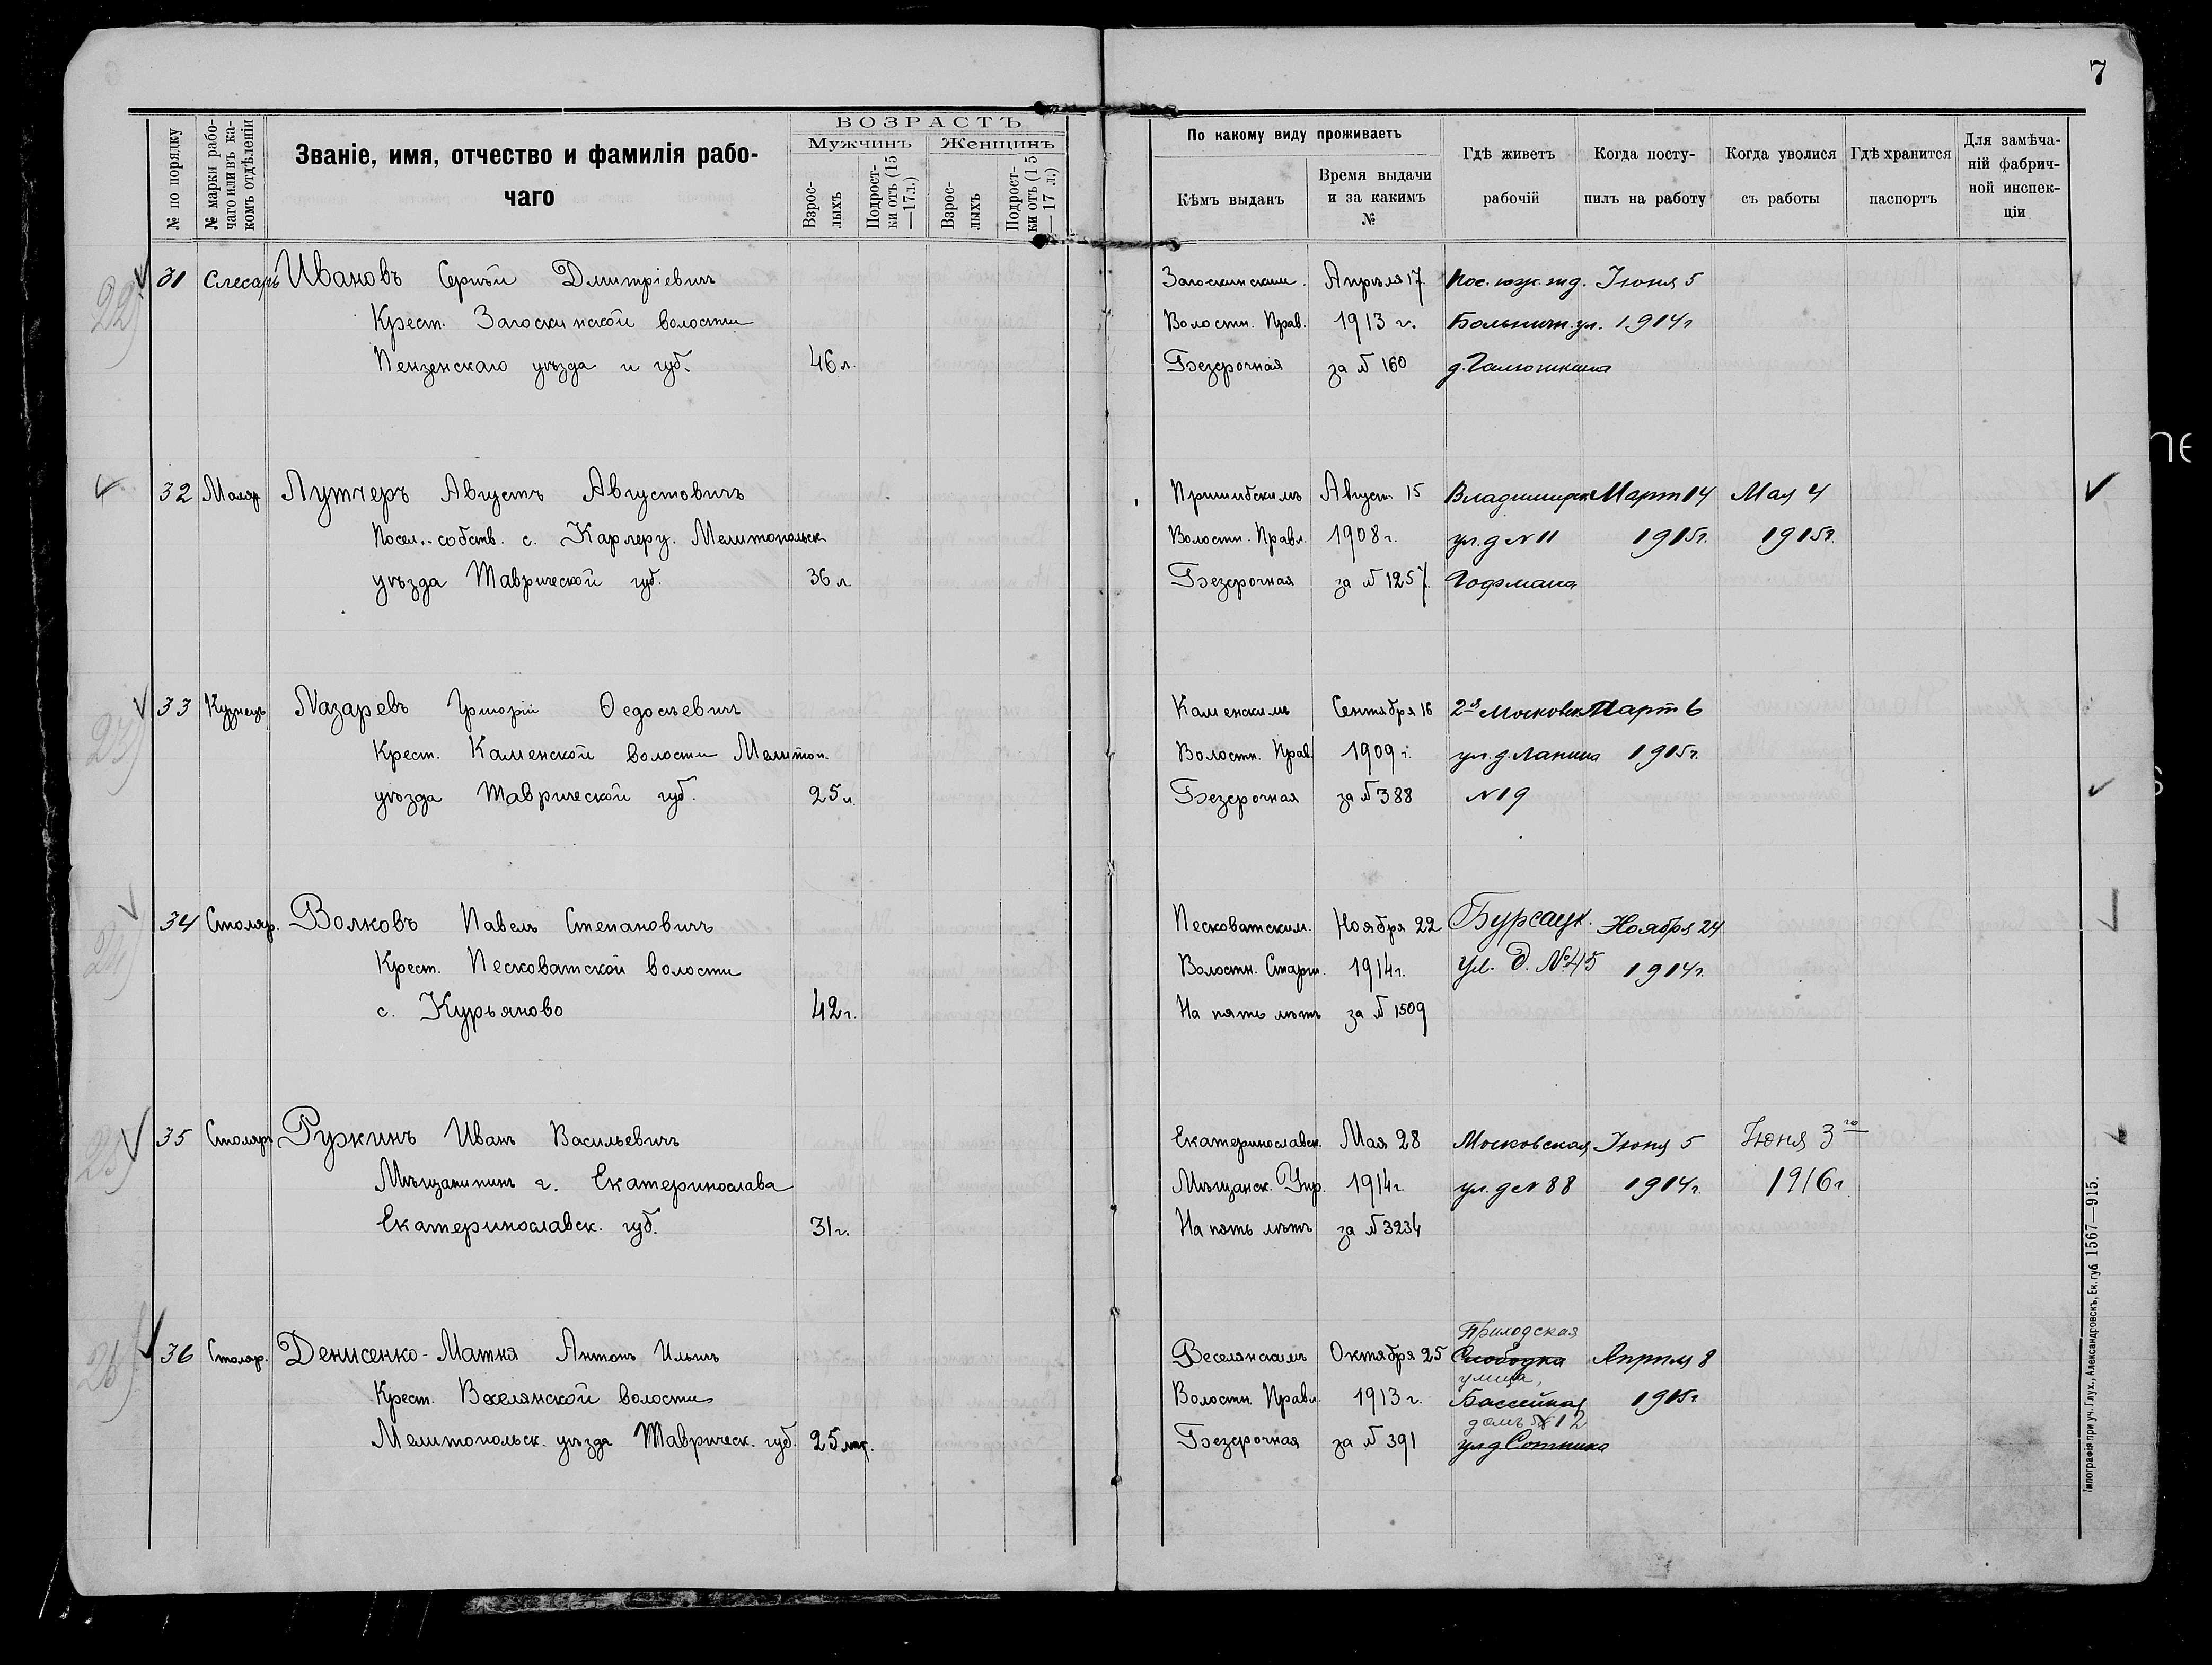 7
№ по порядку
№ марки рабо-
чаго или въ ка-
комъ отдѣленіи
Званіе, имя, отчество и фамилія рабо-
чаго
ВОЗРАСТЪ
Мужчинъ
Женщинъ
Взрос-
лыхъ
Подрост-
ки отъ (15
—17 л.)
Взрос-
лыхъ
Подрост-
ки отъ (15
—17 л.)
По какому виду проживаетъ
Кѣмъ выданъ
Время выдачи
и за какимъ
№
Гдѣ живетъ
рабочій
Когда посту-
пилъ на работу
Когда уволися
съ работы
Гдѣ хранится
паспортъ
Для замѣча-
ній фабрич-
ной инспек-
ціи
22)
31 Слесарь Ивановъ Сергѣй Дмитріевичъ Загоскинским. Апрѣля 17 Пос. юж. жд. Іюня 5
Крест. Загоскинской волости Волостн. Прав. 1913 г. Больничн. ул. 1914 г
Пензенскаго уѣзда и губ. 46 л. Безсрочная за № 160
32 Маляр Лутчеръ Августъ Августовичъ Пришибскимъ Август. 15 Владимирск Март 14 Мая 4
Посел.-собств. с. Карлеру. Мелитопольск Волостн. Правл. 1908 г. ул. д № 11 1915 г. 1915 г.
уѣзда Таврической губ. 36 л Безсрочная за № 125 Гофмана
23)
33 Кузнецъ Лазаревъ Григорій Ѳедосѣевичъ Каменскимъ Сентября 16 2-я Московск Март 6
Крест. Каменской волости Мелитоп. Волостн. Прав. 1909 г. ул. д. Лапина 1915 г.
уѣзда Таврической губ. 25 л. Безсрочная за № 388 № 19
24)
34 Столяр. Волковъ Павелъ Степановичъ Песковатским. Ноября 22 Бурсацк. Ноября 24
Крест. Песковатской волости Волостн. Старш. 1914 г. ул. д. № 45 1914 г.
с. Курьяново 42 г. На пять лѣтъ за № 1509
25)
35 Столяръ Ружкинъ Иванъ Васильевичъ Екатеринославск. Мая 28 Московская Іюня 5 Іюня 3го
Мѣщанинъ г. Екатеринослава Мѣщанск. Упр. 1914 г. ул. д № 88 1914 г. 1916 г
Екатеринославск. губ. 31 г. На пять лѣтъ за № 3234
26)
Приходская
36 Столяр. Денисенко-Матня Антонъ Ильичъ Веселянскимъ Октября 25 Слободка Апрѣля 8
улица,
Крест. Веселянской волости Волостн. Правл. 1913 г. Бассейная 1915 г
домъ № 12
Мелитопольск. уѣзда Таврическ. губ. 25 лѣт. Безсрочная за № 391 ул д Сотника
Типографія при уч. Глух., Александровскъ, Ек. губ. 1567—915.